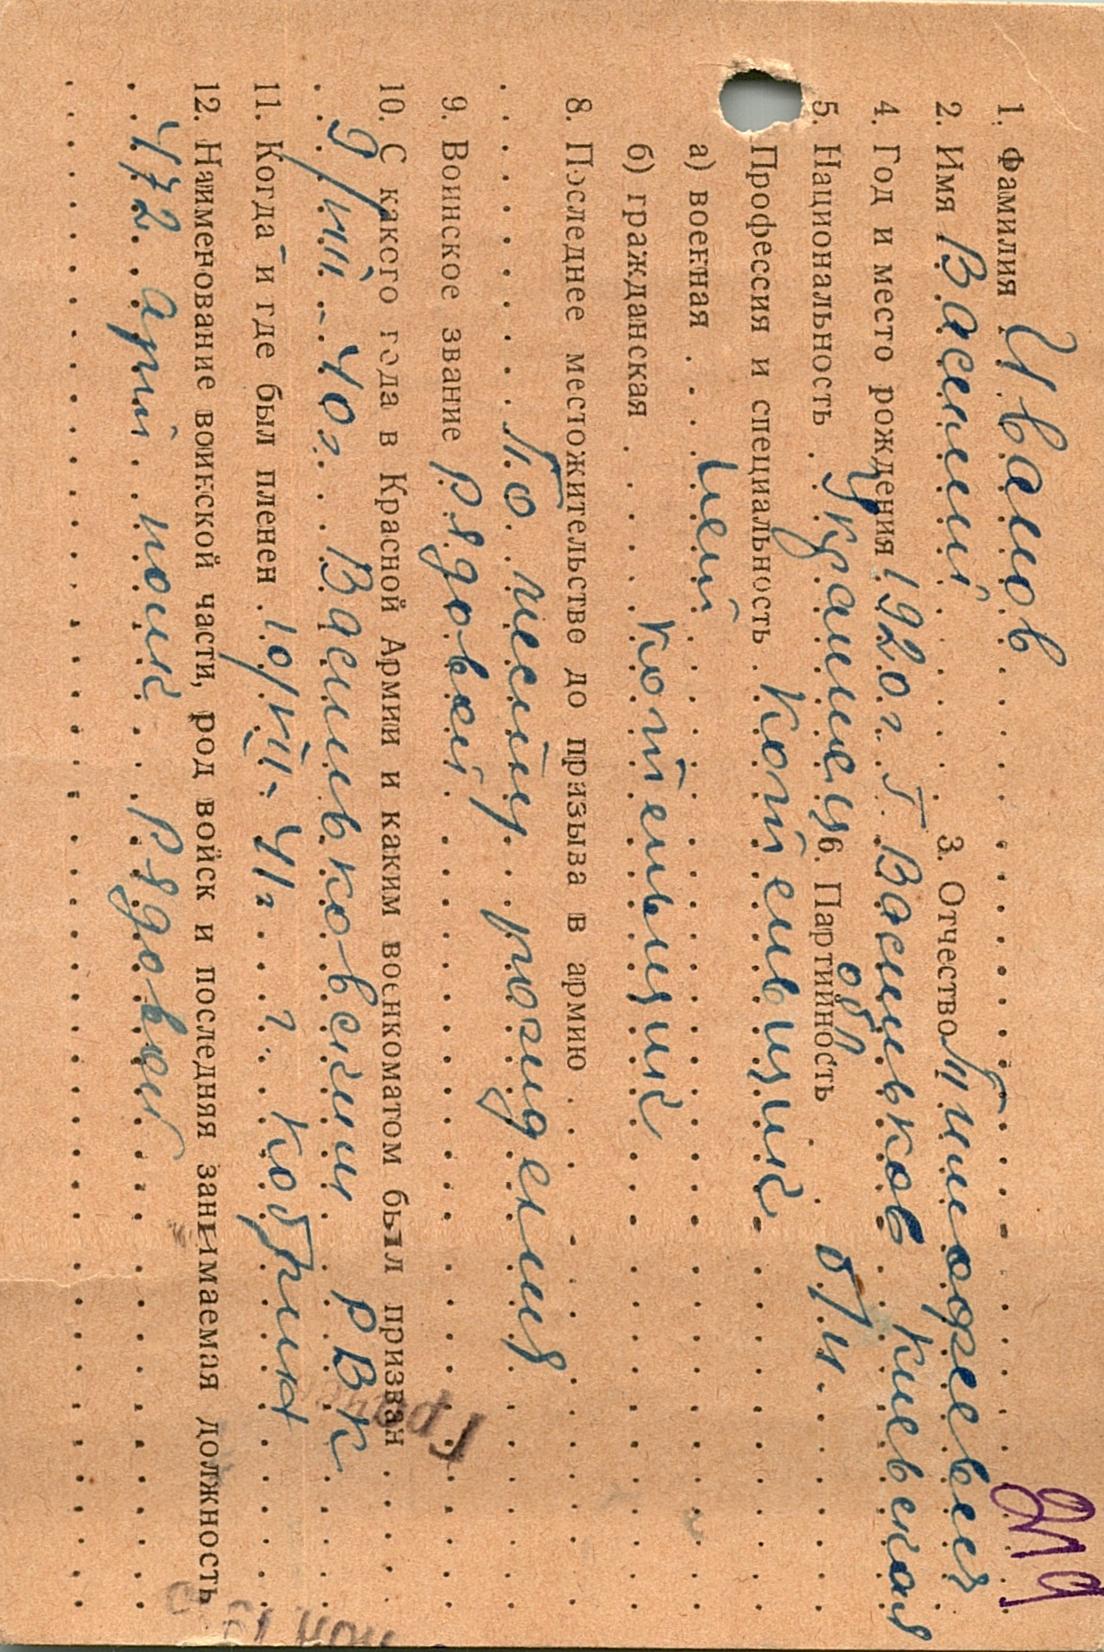 219
1. Фамилия Иванов
2. Имя Василий 3. Отчество Тимофеевич
4. Год и место рождения 1920 г. г. Васильков Киевская
обл
5. Национальность Украинец 6. Партийность б/п
Профессия и специальность Котельщик
а) военная нет
б) гражданская Котельщик
8. Последнее местожительство до призыва в армию
По месту рождения
9. Воинское звание Рядовой
10. С какого года в Красной Армии и каким военкоматом был призван
40г. Васильковским РВК
11. Когда и где был пленен 10/VII-41г г. Кобрин
12. Наименование воинской части, род войск и последняя занимаемая должность
472 арт. полк Рядовой